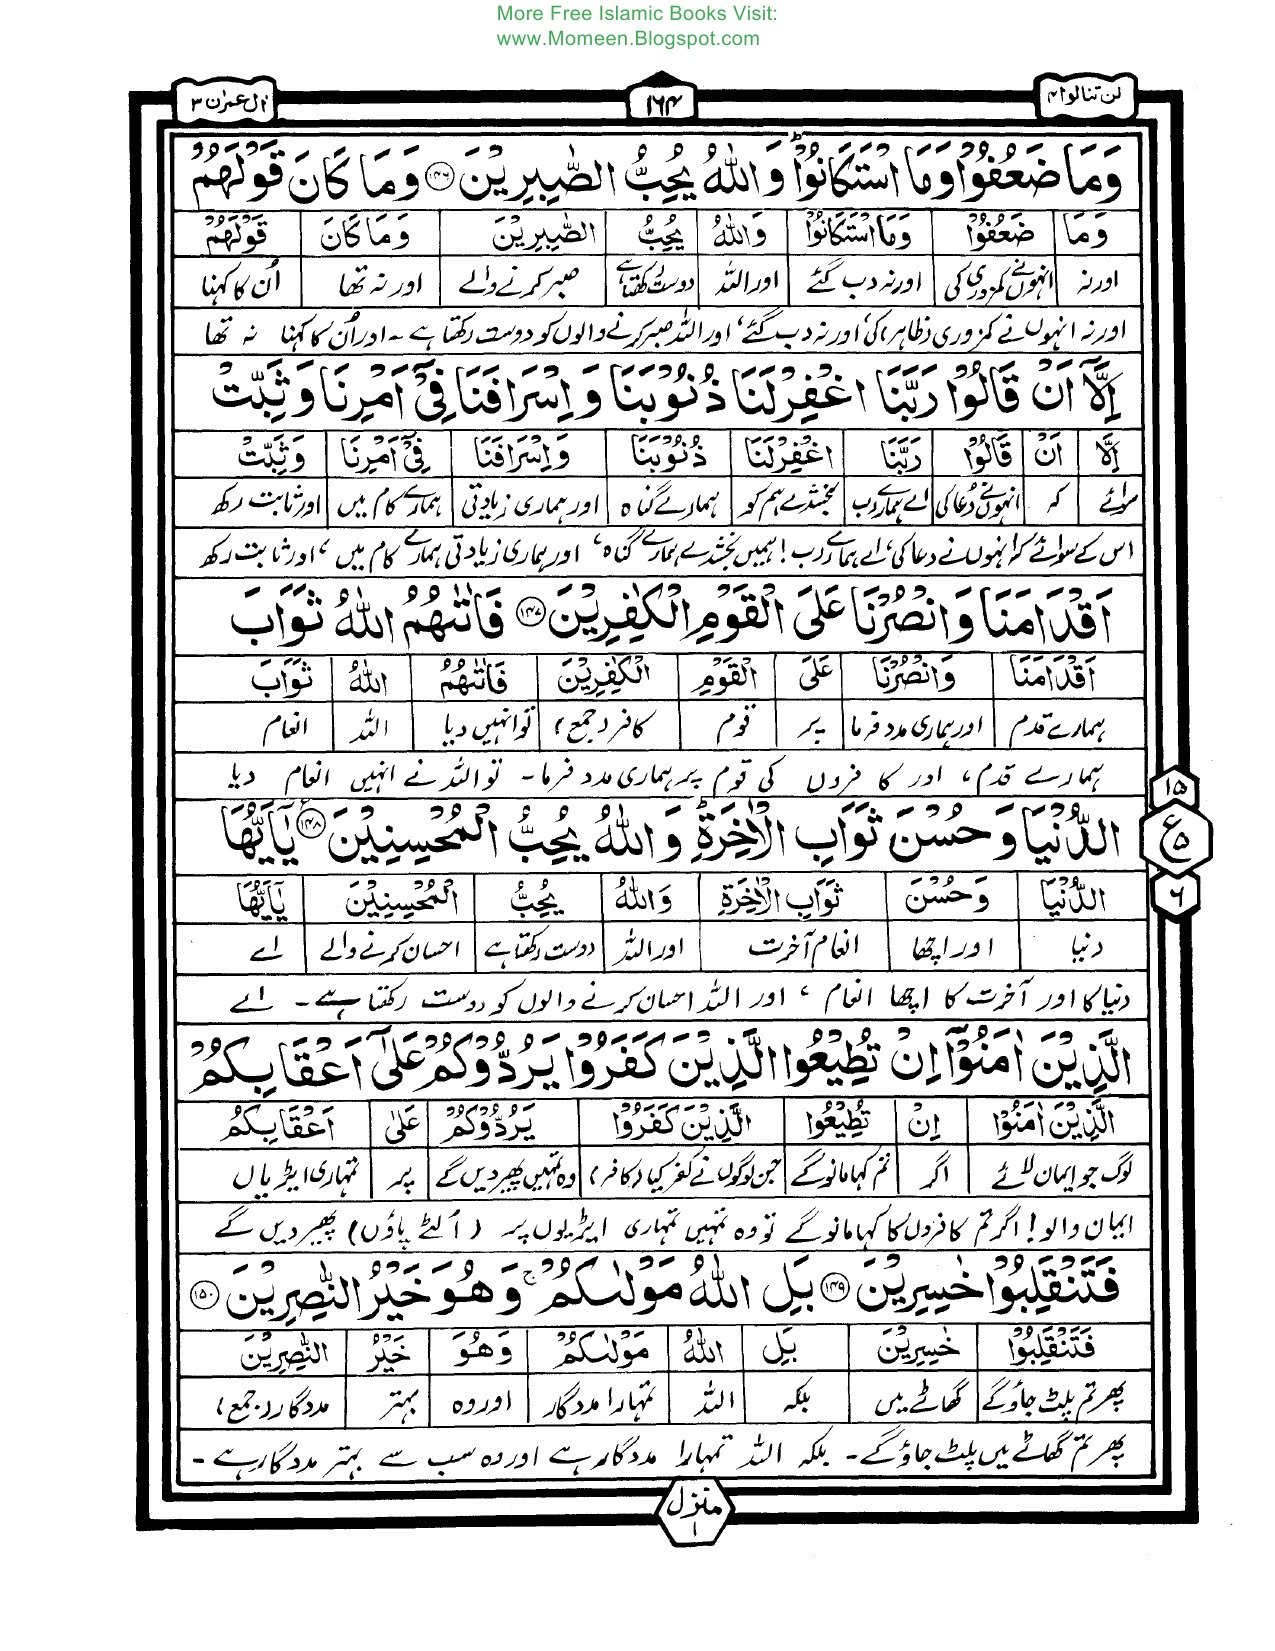 More Free Islamic Books Visit:
www.Momeen.Blogspot.com
لن تنالوا ۴
۱۶۴
اٰل عمرٰن ۳
وَمَا ضَعُفُوْا وَمَا اسْتَكَانُوْا ؕ وَاللّٰهُ يُحِبُّ الصّٰبِرِيْنَ ۝۱۴۶ وَمَا كَانَ قَوْلَهُمْ
وَمَا ضَعُفُوْا وَمَا اسْتَكَانُوْا وَاللّٰهُ يُحِبُّ الصّٰبِرِيْنَ وَمَا كَانَ قَوْلَهُمْ
اور نہ انہوں نے کمزوری کی اور نہ دب گئے اور اللہ دوست رکھتا ہے صبر کرنے والے اور نہ تھا اُن کا کہنا
اور نہ انہوں نے کمزوری (ظاہر) کی، اور نہ دب گئے، اور اللہ صبر کرنے والوں کو دوست رکھتا ہے ۔ اور اُن کا کہنا نہ تھا
اِلَّاۤ اَنْ قَالُوْا رَبَّنَا اغْفِرْلَنَا ذُنُوْبَنَا وَاِسْرَافَنَا فِيْۤ اَمْرِنَا وَثَبِّتْ
اِلَّا اَنْ قَالُوْا رَبَّنَا اغْفِرْلَنَا ذُنُوْبَنَا وَاِسْرَافَنَا فِيْۤ اَمْرِنَا وَثَبِّتْ
سوائے کہ انہوں نے دُعا کی اے ہمارے رب بخشدے ہم کو ہمارے گناہ اور ہماری زیادتی ہمارے کام میں اور ثابت رکھ
اس کے سوائے کہ انہوں نے دعا کی، اے ہمارے رب! ہمیں بخشدے ہمارے گناہ، اور ہماری زیادتی ہمارے کام میں، اور ثابت رکھ
اَقْدَامَنَا وَانْصُرْنَا عَلَى الْقَوْمِ الْكٰفِرِيْنَ ۝۱۴۷ فَاٰتٰىهُمُ اللّٰهُ ثَوَابَ
اَقْدَامَنَا وَانْصُرْنَا عَلَى الْقَوْمِ الْكٰفِرِيْنَ فَاٰتٰىهُمُ اللّٰهُ ثَوَابَ
ہمارے قدم اور ہماری مدد فرما پر قوم کافر (جمع) تو انہیں دیا اللہ انعام
ہمارے قدم، اور کافروں کی قوم پر ہماری مدد فرما ۔ تو اللہ نے انہیں انعام دیا
الدُّنْيَا وَحُسْنَ ثَوَابِ الْاٰخِرَةِ ؕ وَاللّٰهُ يُحِبُّ الْمُحْسِنِيْنَ ۝۱۴۸ يٰۤاَيُّهَا
۱۵
ع
۵
۶
الدُّنْيَا وَحُسْنَ ثَوَابِ الْاٰخِرَةِ وَاللّٰهُ يُحِبُّ الْمُحْسِنِيْنَ يٰۤاَيُّهَا
دنیا اور اچھا انعام آخرت اور اللہ دوست رکھتا ہے احسان کرنے والے اے
دنیا کا اور آخرت کا اچھا انعام، اور اللہ احسان کرنے والوں کو دوست رکھتا ہے ۔ اے
الَّذِيْنَ اٰمَنُوْۤا اِنْ تُطِيْعُوا الَّذِيْنَ كَفَرُوْا يَرُدُّوْكُمْ عَلٰۤى اَعْقَابِكُمْ
الَّذِيْنَ اٰمَنُوْا اِنْ تُطِيْعُوا الَّذِيْنَ كَفَرُوْا يَرُدُّوْكُمْ عَلٰۤى اَعْقَابِكُمْ
لوگ جو ایمان لائے اگر تم کہا مانو گے جن لوگوں نے کفر کیا (کافر) وہ تمہیں پھیر دیں گے پر تمہاری ایڑیاں
ایمان والو! اگر تم کافروں کا کہا مانو گے تو وہ تمہیں تمہاری ایڑیوں پر (اُلٹے پاؤں) پھیر دیں گے
فَتَنْقَلِبُوْا خٰسِرِيْنَ ۝۱۴۹ بَلِ اللّٰهُ مَوْلٰىكُمْ ۚ وَهُوَ خَيْرُ النّٰصِرِيْنَ ۝۱۵۰
فَتَنْقَلِبُوْا خٰسِرِيْنَ بَلِ اللّٰهُ مَوْلٰىكُمْ وَهُوَ خَيْرُ النّٰصِرِيْنَ
پھر تم پلٹ جاؤ گے گھاٹے میں بلکہ اللہ تمہارا مددگار اور وہ بہتر مددگار (جمع)
پھر تم گھاٹے میں پلٹ جاؤ گے ۔ بلکہ اللہ تمہارا مددگار ہے اور وہ سب سے بہتر مددگار ہے ۔
منزل
۱